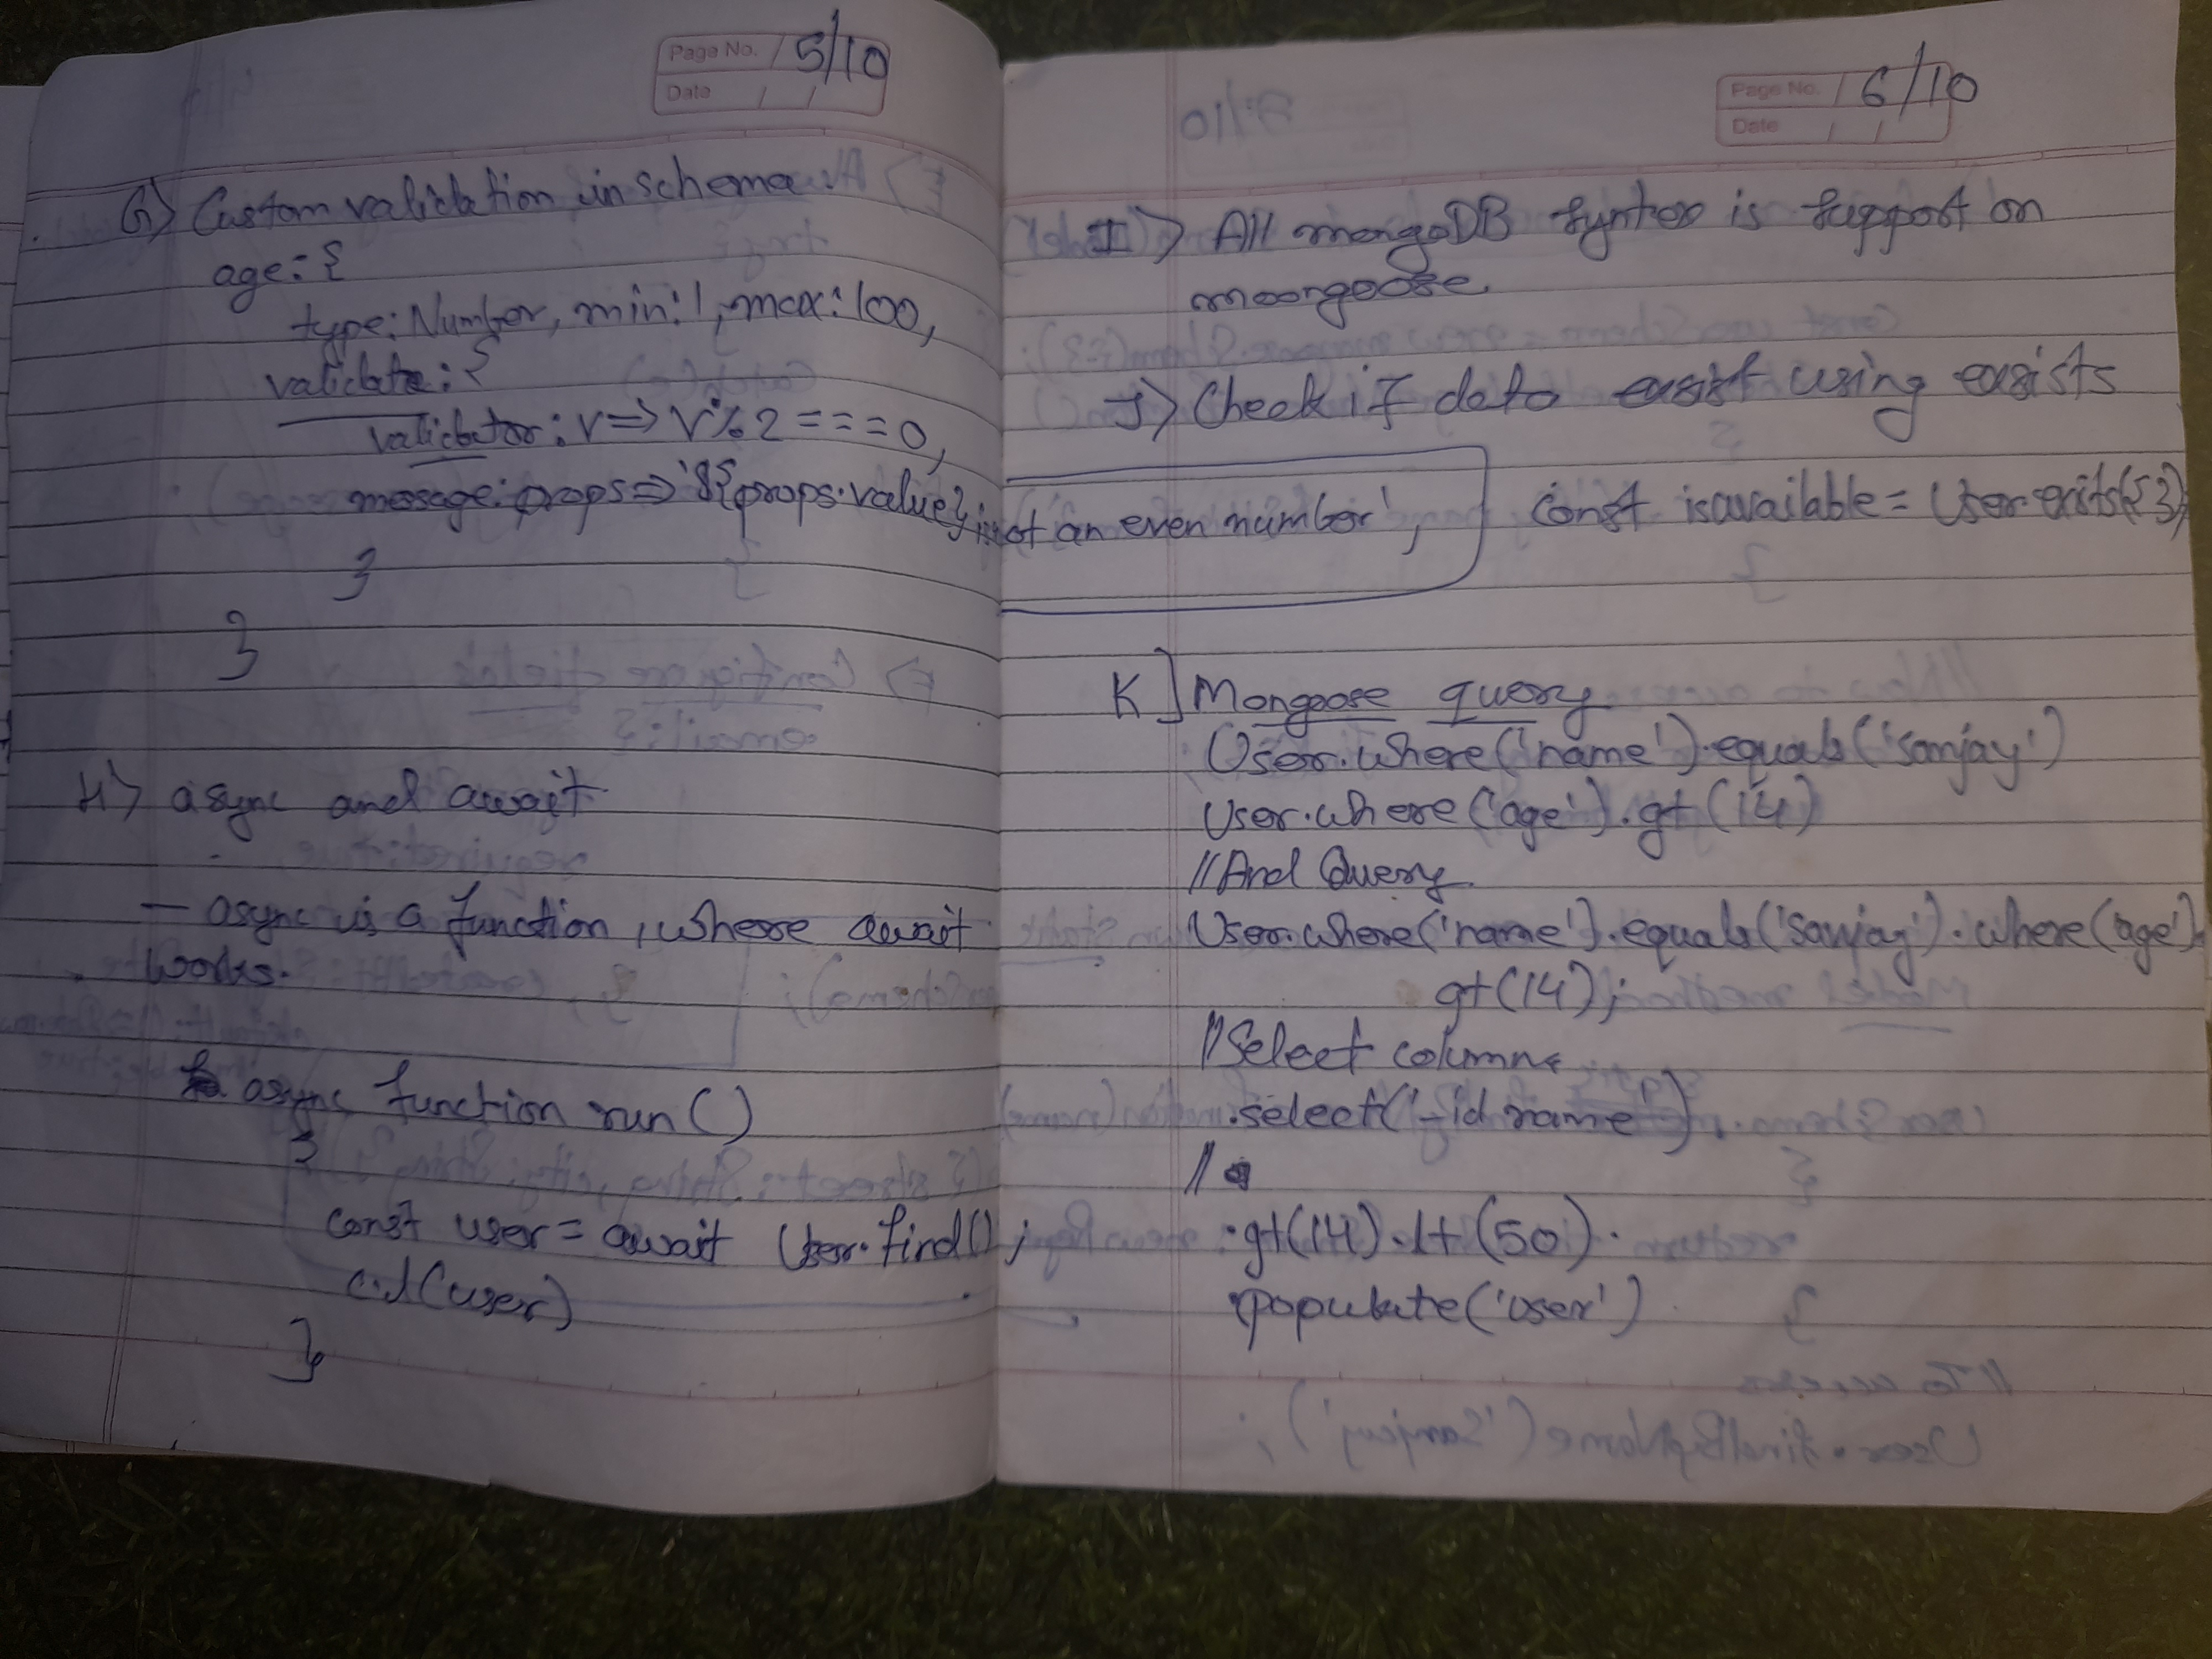 Page No. 5/10
Date / /
G) Custom validation in schema
age: {
type: Number, min: 1, max: 100,
validate: {
validator: v => v % 2 === 0,
message: props => `${props.value} is not an even number`,
}
}
H) async and await
- async is a function, where await
works.
async function run()
{
const user = await User.find();
c.l(user)
}
Page No. 6/10
Date / /
I) All mongoDB syntax is support on
moongoose.
J) Check if data exist using exists
const isavailable = User.exits({});
K] Mongoose query
User.where('name').equals('sanjay')
User.where('age').gt(14)
//And Query
User.where('name').equals('sanjay').where('age').
gt(14);
//Select columns
.select('-id name').
//
.gt(14).lt(50).
populate('user')